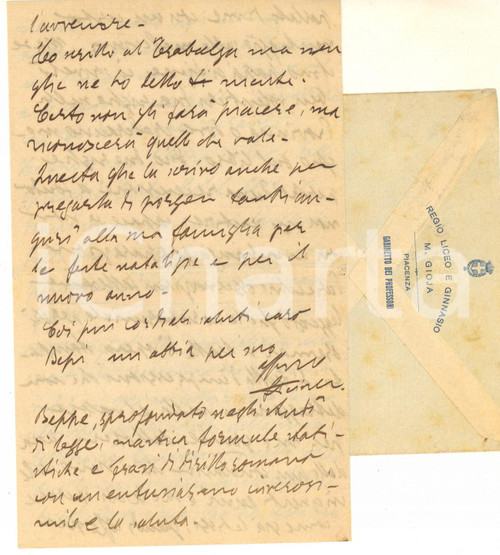 l'avvenire -
Ho scritto al Trabalza ma non
glie ne ho detto niente.
Certo non gli farà piacere, ma
riconoscerà quello che vale -
Questa glie la scrivo anche per
pregarla di porgere tanti au-
guri alla sua famiglia per
le feste natalizie e per il
nuovo anno
Coi più cordiali saluti, caro
Bepi mi abbia per suo
aff.mo
Beppe, sprofondato negli studi
di legge, mastica formule stati-
stiche e frasi di diritto romano
con un entusiasmo inverosi-
mile e la saluta.
REGIO LICEO E GINNASIO
M. GIOJA
PIACENZA
GABINETTO DEI PROFESSORI
iCharta